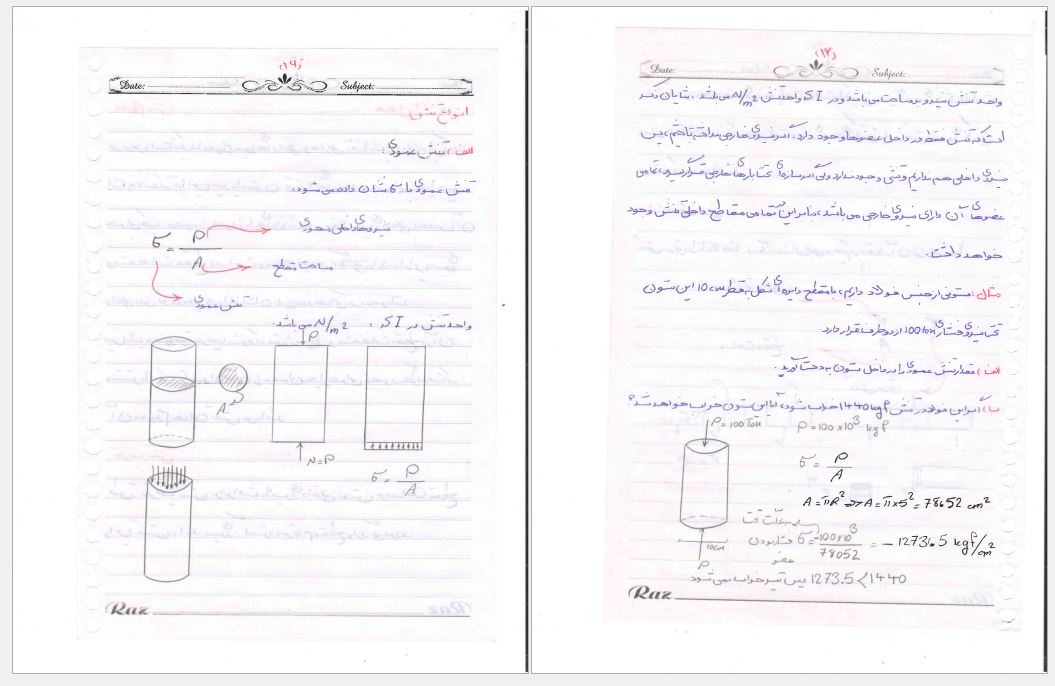 ۱۶
Date: Subject:
انواع تنش
الف) تنش عمودی:
تنش عمودی با б نشان داده می‌شود:
б = P / A
نیروهای داخلی محوری
مساحت مقطع
تنش عمودی
واحد تنش در SI ، N/m² می‌باشد.
P
A
N=P
б = P / A
Raz
Date: Subject:
واحد تنش نیرو بر مساحت می‌باشد و در SI واحد تنش N/m² می‌باشد. شایان ذکر
است که تنش فقط در داخل عضوها وجود دارد. اگر نیروی خارجی نداشته باشیم، پس
نیروی داخلی هم نداریم و تنشی وجود ندارد ولی اگر سازه‌ای تحت بارهای خارجی قرار گیرد، تمامی
عضوهای آن دارای نیروی خارجی می‌باشد، بنابراین تمامی مقاطع داخلی تنش وجود
خواهد داشت.
مثال: ستونی از جنس فولاد داریم، با مقطع دایره‌ای شکل به قطر 10cm این ستون
تحت نیروی فشاری 100 ton از دو طرف قرار دارد.
الف) مقدار تنش عمودی را در داخل ستون به دست آورید.
ب) اگر این فولاد در تنش 1440 kgf خراب شود، آیا این ستون خراب خواهد شد؟
P=100 Ton P=100x10³ kgf
б = P / A
A=πR² => A=πx5²=78652 cm²
به علت تحت
فشار بودن
عضو
б = -100x10³ / 78052 = -1273.5 kgf/cm²
10cm
P
1273.5<1440 پس تیر خراب نمی‌شود
Raz